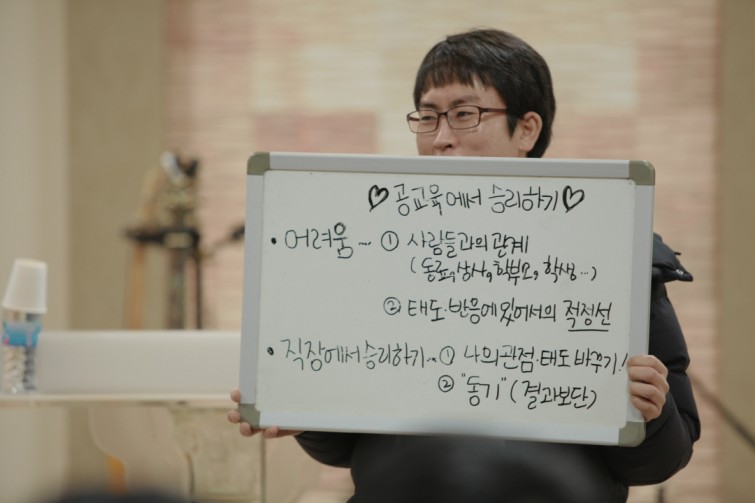 ♡ 공교육에서 승리하기 ♡
• 어려움... ① 사람들과의 관계
(동료, 상사, 학부모, 학생...)
② 태도·반응에 있어서의 적정선
• 직장에서 승리하기... ① 나의 관점·태도 바꾸기!
② "동기" (결과보단)